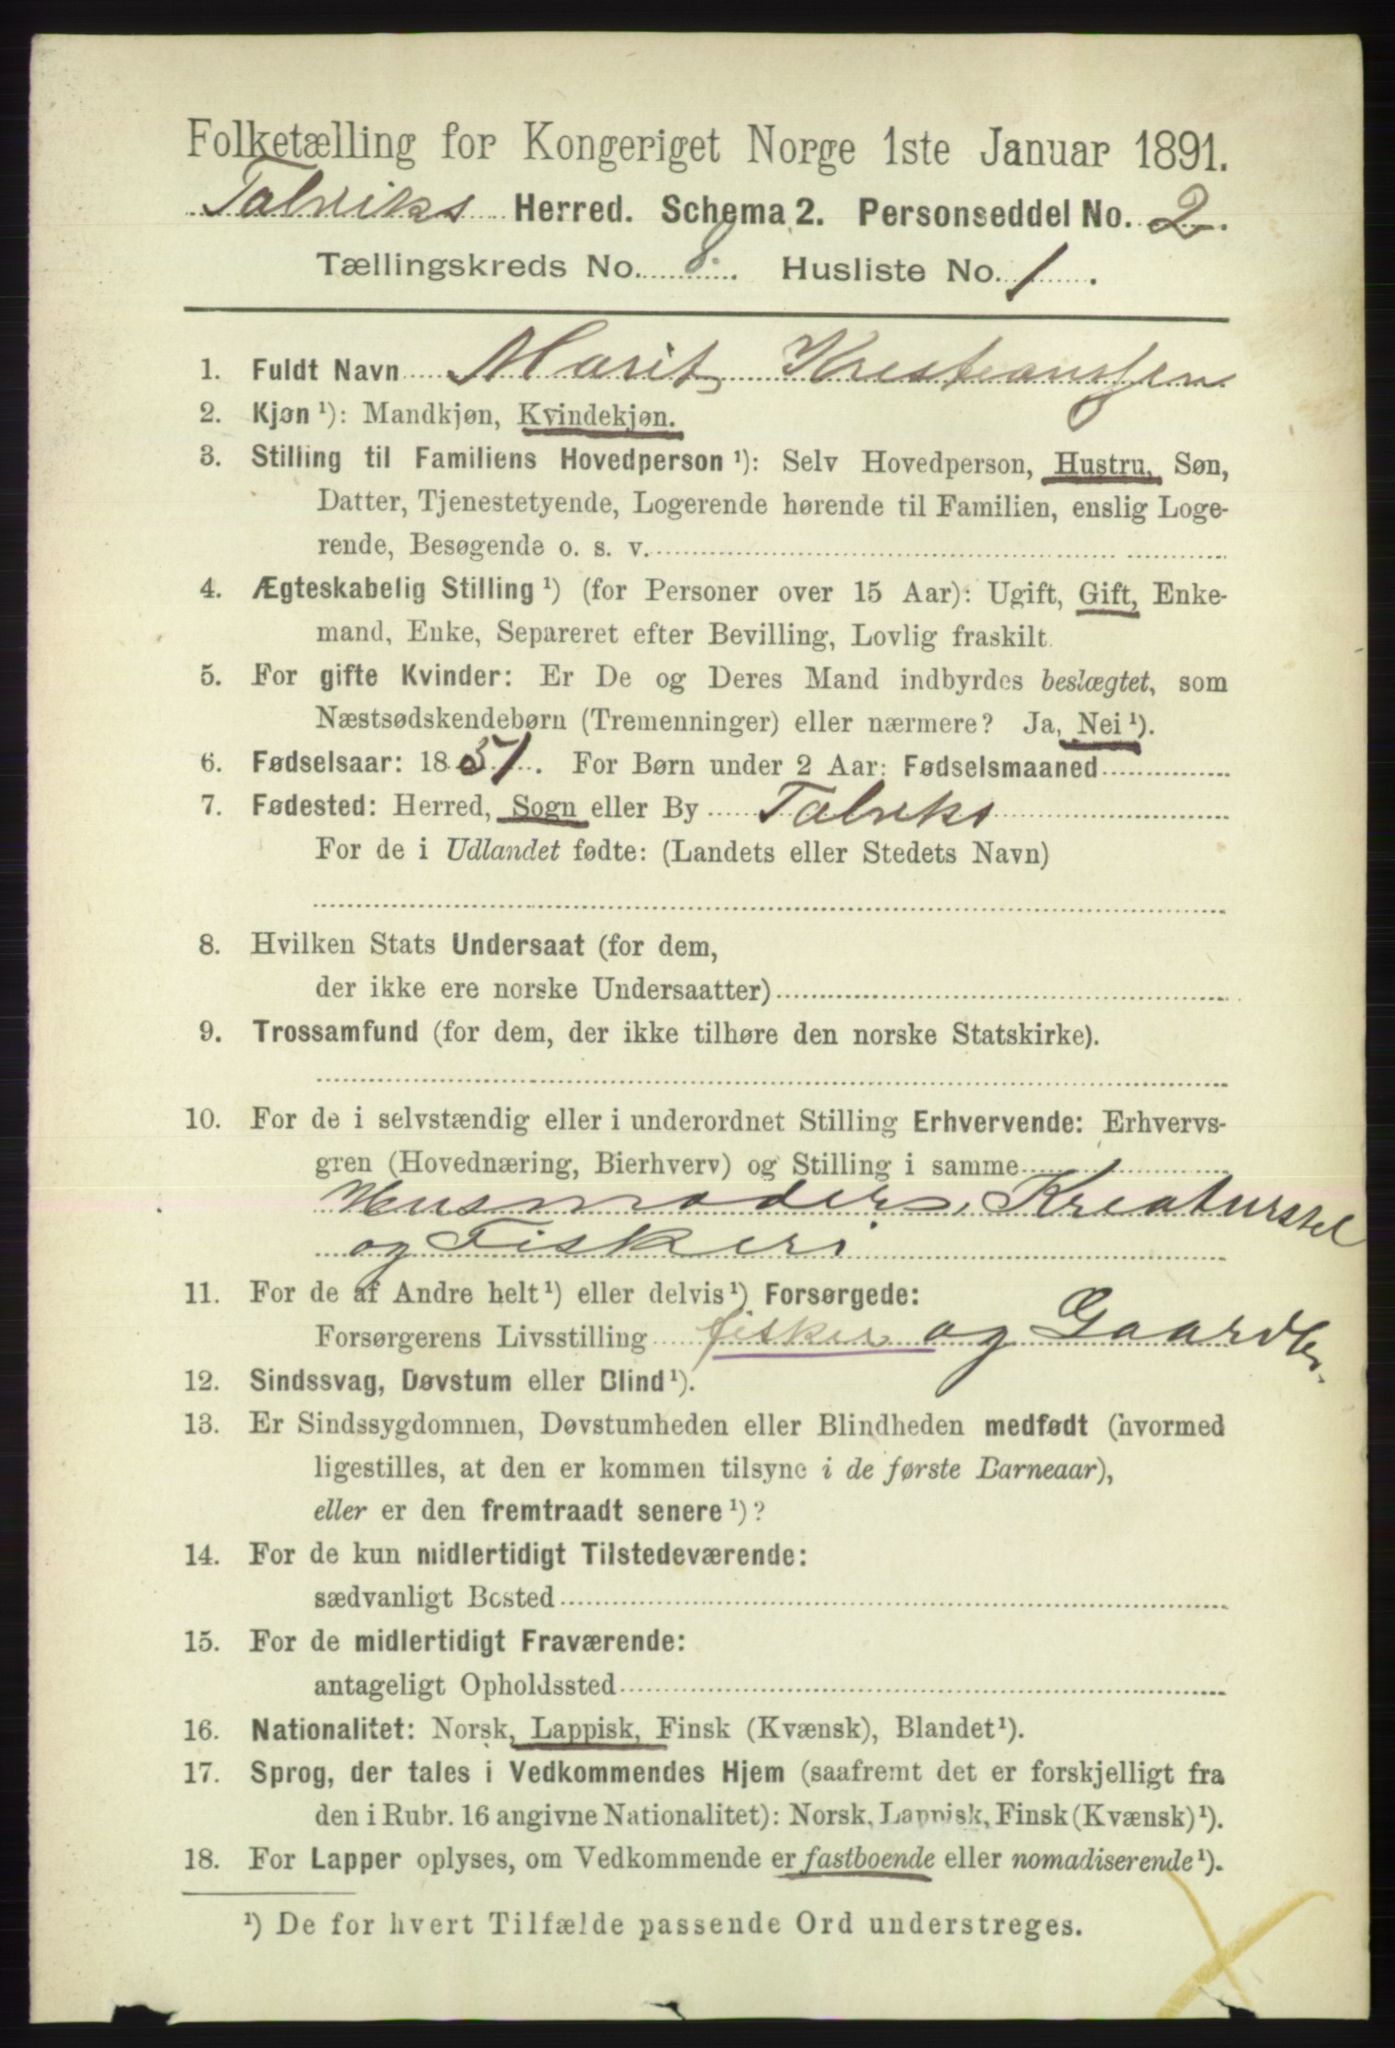 Folketælling for Kongeriget Norge 1ste Januar 1891.
Talviks Herred. Schema 2. Personseddel No. 2.
Tællingskreds No. 8. Husliste No. 1.
1. Fuldt Navn Marit Kristiansen
2. Kjøn ¹): Mandkjøn, Kvindekjøn.
3. Stilling til Familiens Hovedperson ¹): Selv Hovedperson, Hustru, Søn,
Datter, Tjenestetyende, Logerende hørende til Familien, enslig Loge-
rende, Besøgende o. s. v.
4. Ægteskabelig Stilling ¹) (for Personer over 15 Aar): Ugift, Gift, Enke-
mand, Enke, Separeret efter Bevilling, Lovlig fraskilt.
5. For gifte Kvinder: Er De og Deres Mand indbyrdes beslægtet, som
Næstsødskendebørn (Tremenninger) eller nærmere? Ja, Nei ¹).
6. Fødselsaar: 1851. For Børn under 2 Aar: Fødselsmaaned
7. Fødested: Herred, Sogn eller By Talviks
For de i Udlandet fødte: (Landets eller Stedets Navn)
8. Hvilken Stats Undersaat (for dem,
der ikke ere norske Undersaatter)
9. Trossamfund (for dem, der ikke tilhøre den norske Statskirke).
10. For de i selvstændig eller i underordnet Stilling Erhvervende: Erhvervs-
gren (Hovednæring, Bierhverv) og Stilling i samme
Husmoder, Kreaturstel
og Fiskeri
11. For de af Andre helt ¹) eller delvis ¹) Forsørgede:
Forsørgerens Livsstilling fisker og Gaardbr.
12. Sindssvag, Døvstum eller Blind ¹).
13. Er Sindssygdommen, Døvstumheden eller Blindheden medfødt (hvormed
ligestilles, at den er kommen tilsyne i de første Barneaar),
eller er den fremtraadt senere ¹)?
14. For de kun midlertidigt Tilstedeværende:
sædvanligt Bosted
15. For de midlertidigt Fraværende:
antageligt Opholdssted
16. Nationalitet: Norsk, Lappisk, Finsk (Kvænsk), Blandet ¹).
17. Sprog, der tales i Vedkommendes Hjem (saafremt det er forskjelligt fra
den i Rubr. 16 angivne Nationalitet): Norsk, Lappisk, Finsk (Kvænsk) ¹).
18. For Lapper oplyses, om Vedkommende er fastboende eller nomadiserende ¹).
¹) De for hvert Tilfælde passende Ord understreges.